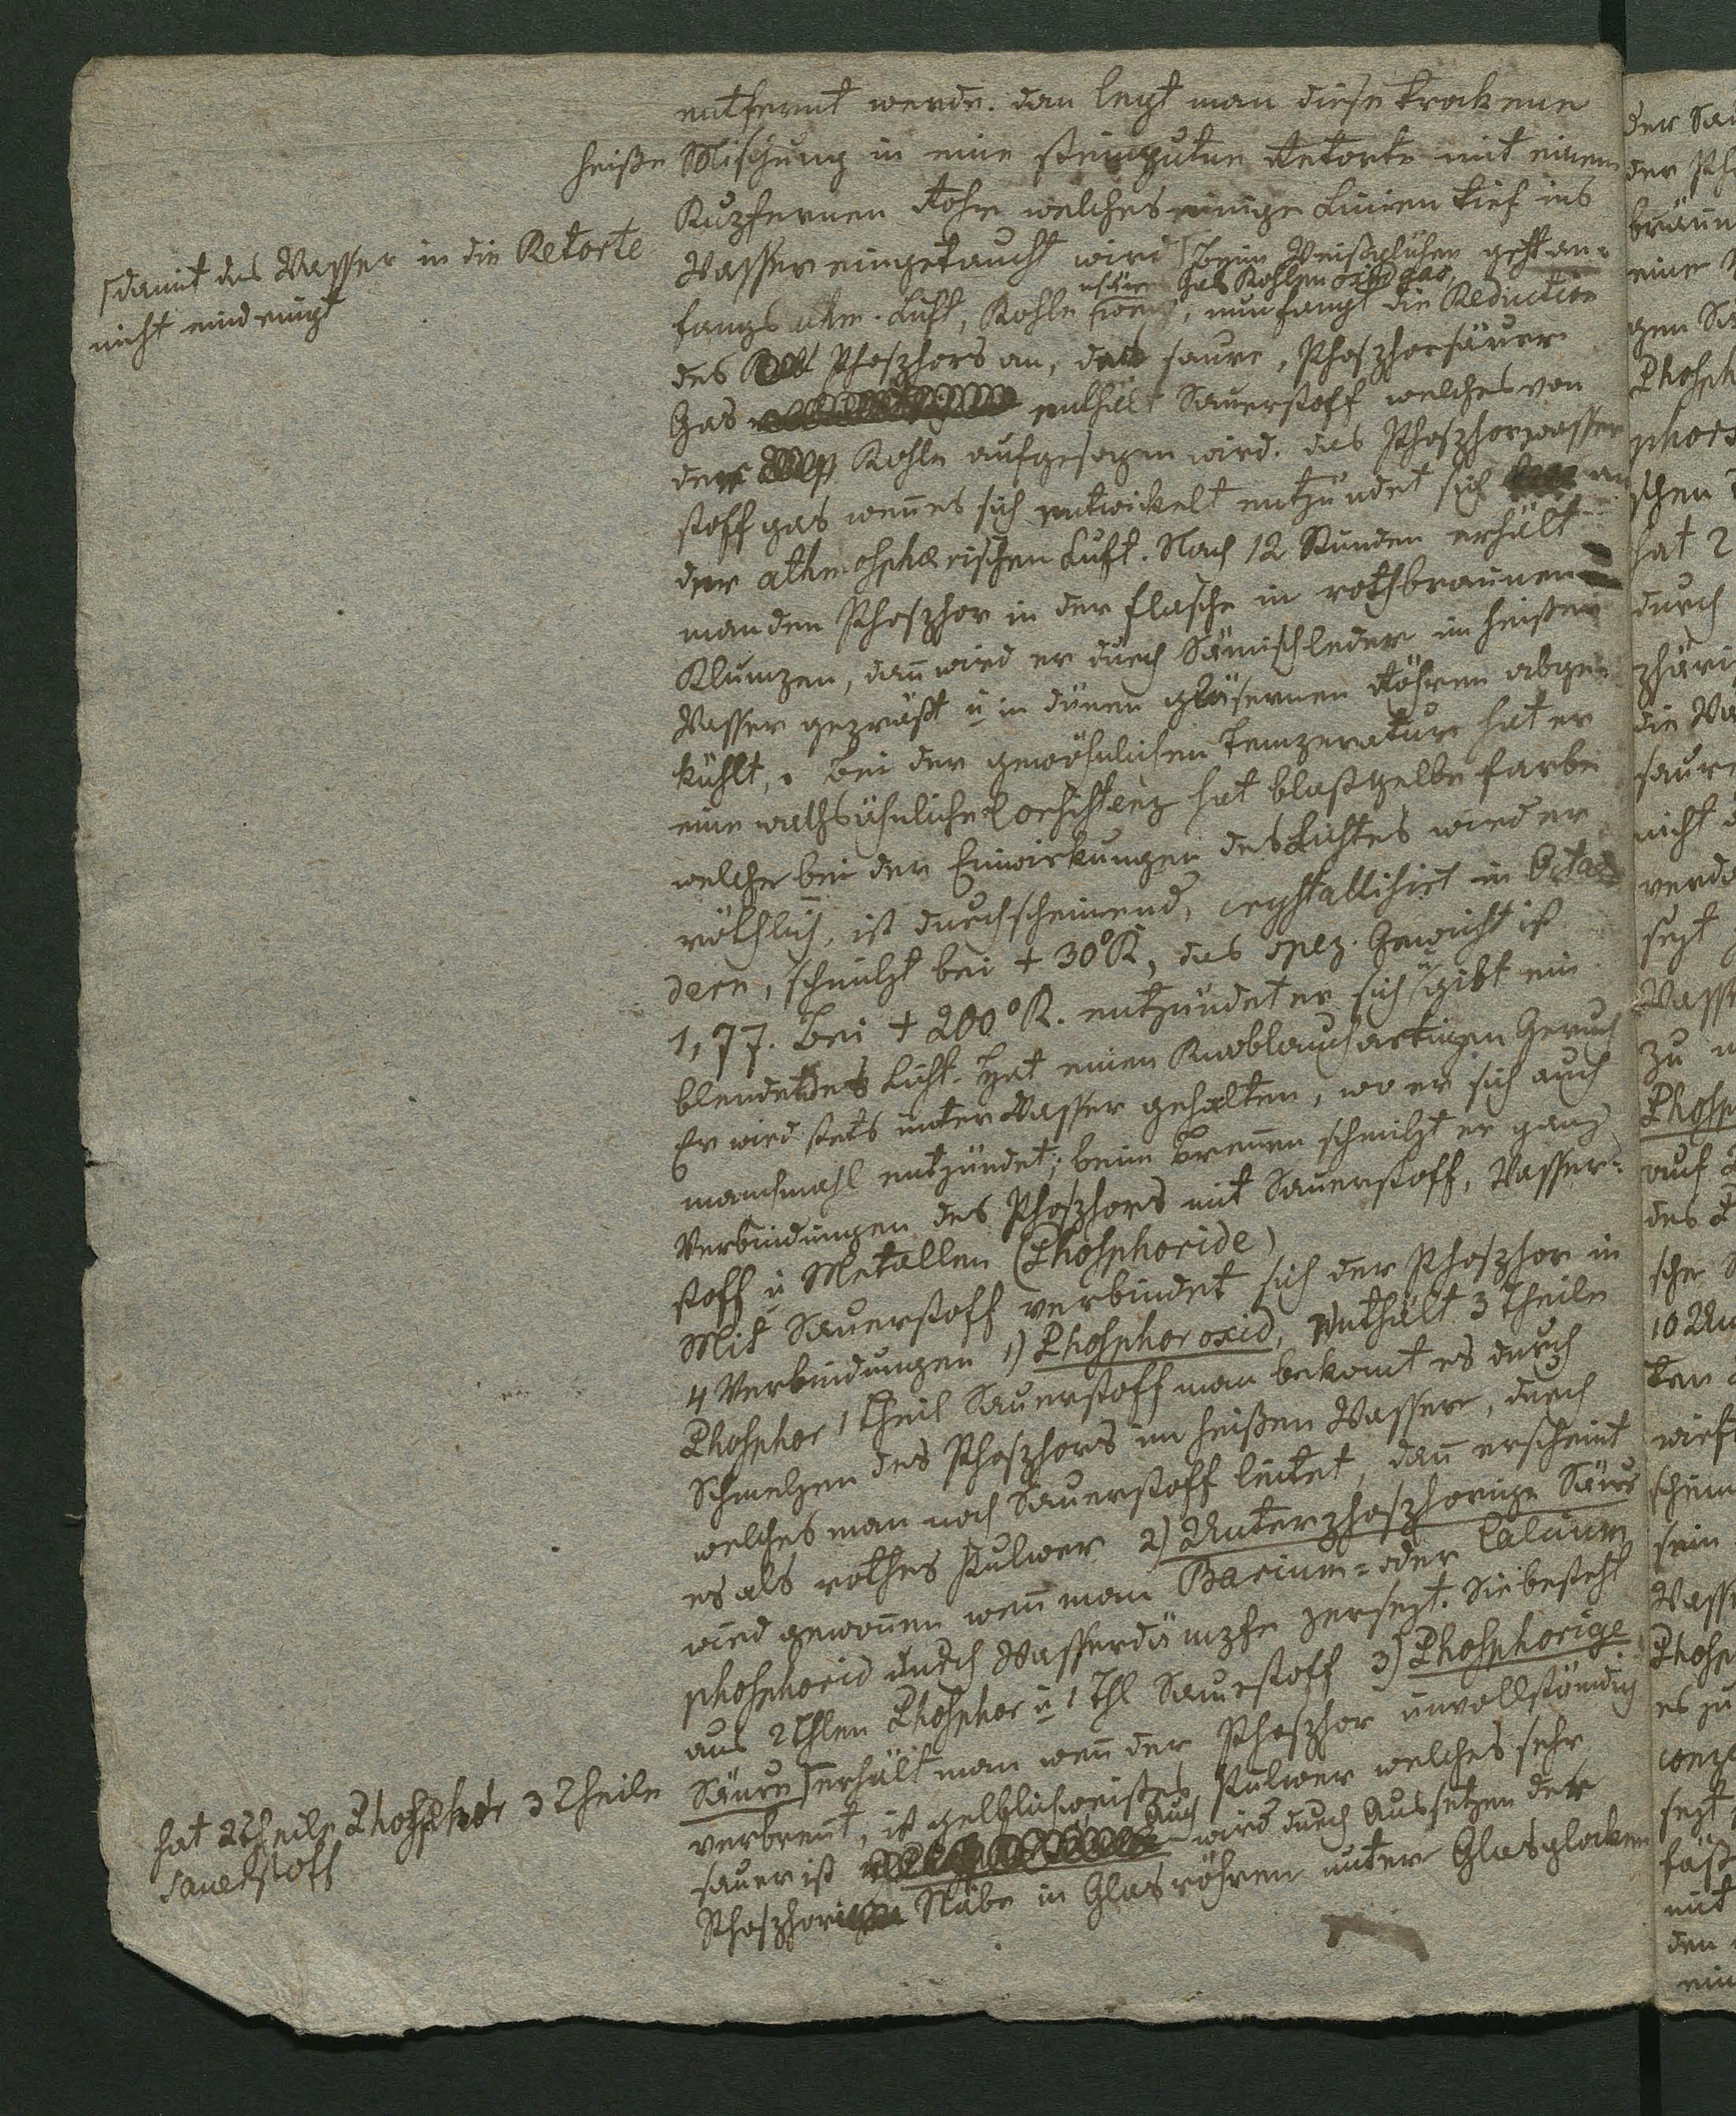 entfernt werde. dan legt man diese trockene
heiße Mischung in eine steingutne Retorte mit einem
Kupfernen Rohr welches einige Linien tief ins
Wasser eingetaucht wird ⌈ beim Weißglühen geht an-
⌈damit das Wasser in die Retorte
nicht eindringt
Gas Kohlenoxid gas
fangs atm. Luft, Kohlen nun fangt die Reduction
des Phosphors an, das saure, Phosphorsäure
Gas enthält Sauerstoff welches von
der Kohle aufgesogen wird. das Phosphorwasser
stoff gas wen̄ es sich entwickelt entzündet sich an
der athmosphærischen Luft. Nach 12 Stunden erhält
man den Phosphor in der flasche in rothbraunen
Klumpen, dan̄ wird er durch Sämischleder im heißen
Wasser gepreßt u in dünen gläsernen Röhren abge-
kühlt,. Bei der gewöhnlichen Temperatur hat er
eine wachsähnliche Consistenz hat blaßgelbe farbe
welche bei der Einwirkungen des Lichtes wird er
röthlich, ist durchscheinend, crystallisirt in Octae
dern, schmilzt bei + 30° R, das spez. Gewicht ist
1,77. Bei + 200° R. entzündet er sich u gibt ein
blendendes Licht. Hat einen Knoblauchartigen Geruch
Er wird stets unter Wasser gehalten, wo er sich auch
manchmahl entzündet; beim Brennen schmilzt er ganz
Verbindungen des Phosphors mit Sauerstoff, Wasser-
stoff u Metallen (Phosphoride)
Mit Sauerstoff verbindet sich der Phosphor in
4 Verbindungen 1) Phosphoroxid, enthält 3 Theile
Phosphor 1 Theil Sauerstoff man bekomt es durch
Schmelzen des Phosphors im heißen Wasser, durch
welches man noch Sauerstoff leitet, dan̄ erscheint
es als rothes Pulwer 2) Unterphosphorige Säure
wird gewon̄en wen̄ man Barium- oder Calcium
phosphorid durch Wasserdämpfe zersezt. Sie besteht
aus 2 Thlen Phosphor u 1 Thl Sauerstoff 3) Phosphorige
Säure ⌈ erhält man wen̄ der Phosphor unvollständig
hat 2 Theile Phosphor 3 Theile
Sauerstoff
verbrent, ist gelblichweißes Pulwer welches sehr
sauer ist Auch wird durch Aussetzen der
Phosphor Stäbe in Glasröhren unter Glasglocken
der Sau
der Pho
bräun
eine
gen Sä
Phosph
phors
schen
hat 2
durch
phäri
die Wa
saure
nicht d
verda
sezt
Wass
zu
Phosp
auf
des P
sche
10
ten
wirft
schim
sein
Wass
Phosp
es zu
conz
sezt
faß
mit
den
ein